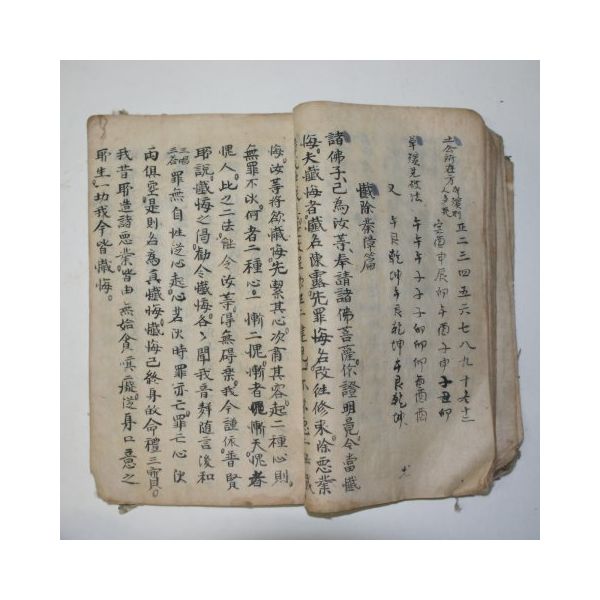 正二三四五六七八九十
午午午子子子卯卯卯酉酉酉
又 午艮乾坤午艮乾坤午艮乾坤
懺除業障篇
諸佛子已為汝等奉請諸佛菩薩作證明竟今當懺
悔夫懺悔者懺名陳露先罪悔名改徃修來除惡業
悔汝等將欲懺悔先繫其心次肅其容起二種心則
無罪不滅何者二種心一慚二愧慚者愧慚天愧者
愧人此之二法能令汝等得無碍業我今謹依普賢
所說懺悔之偈勸令懺悔各々聞我音聲隨言後和
罪無自性從心起心若滅時罪亦亡罪亡心滅
兩俱空是則名為真懺悔懺悔已終身敀命禮三寶
我昔所造諸惡業皆由無始貪嗔癡從身口意之
所生一切我今皆懺悔